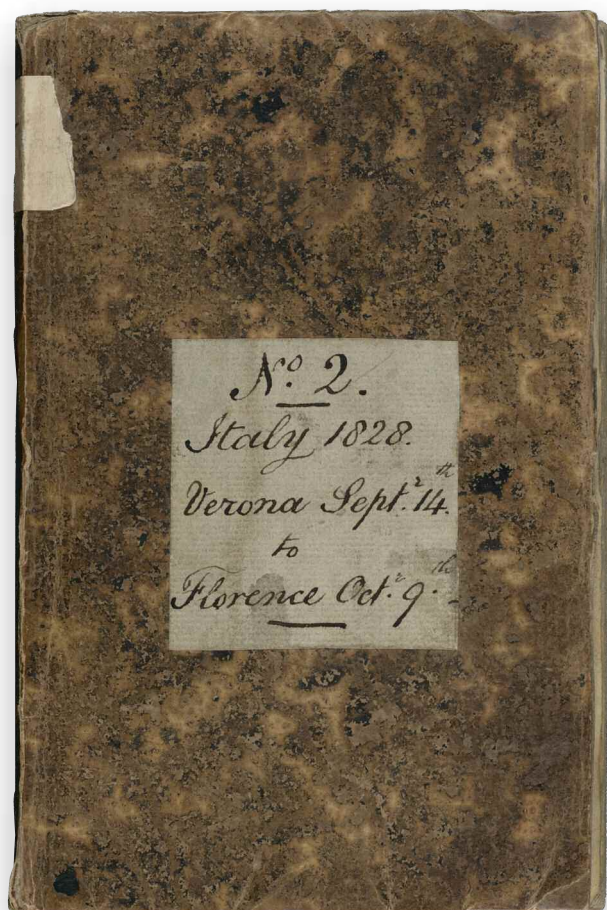 Nº 2.
Italy 1828.
Verona Septr. 14th
to
Florence Octr. 9th